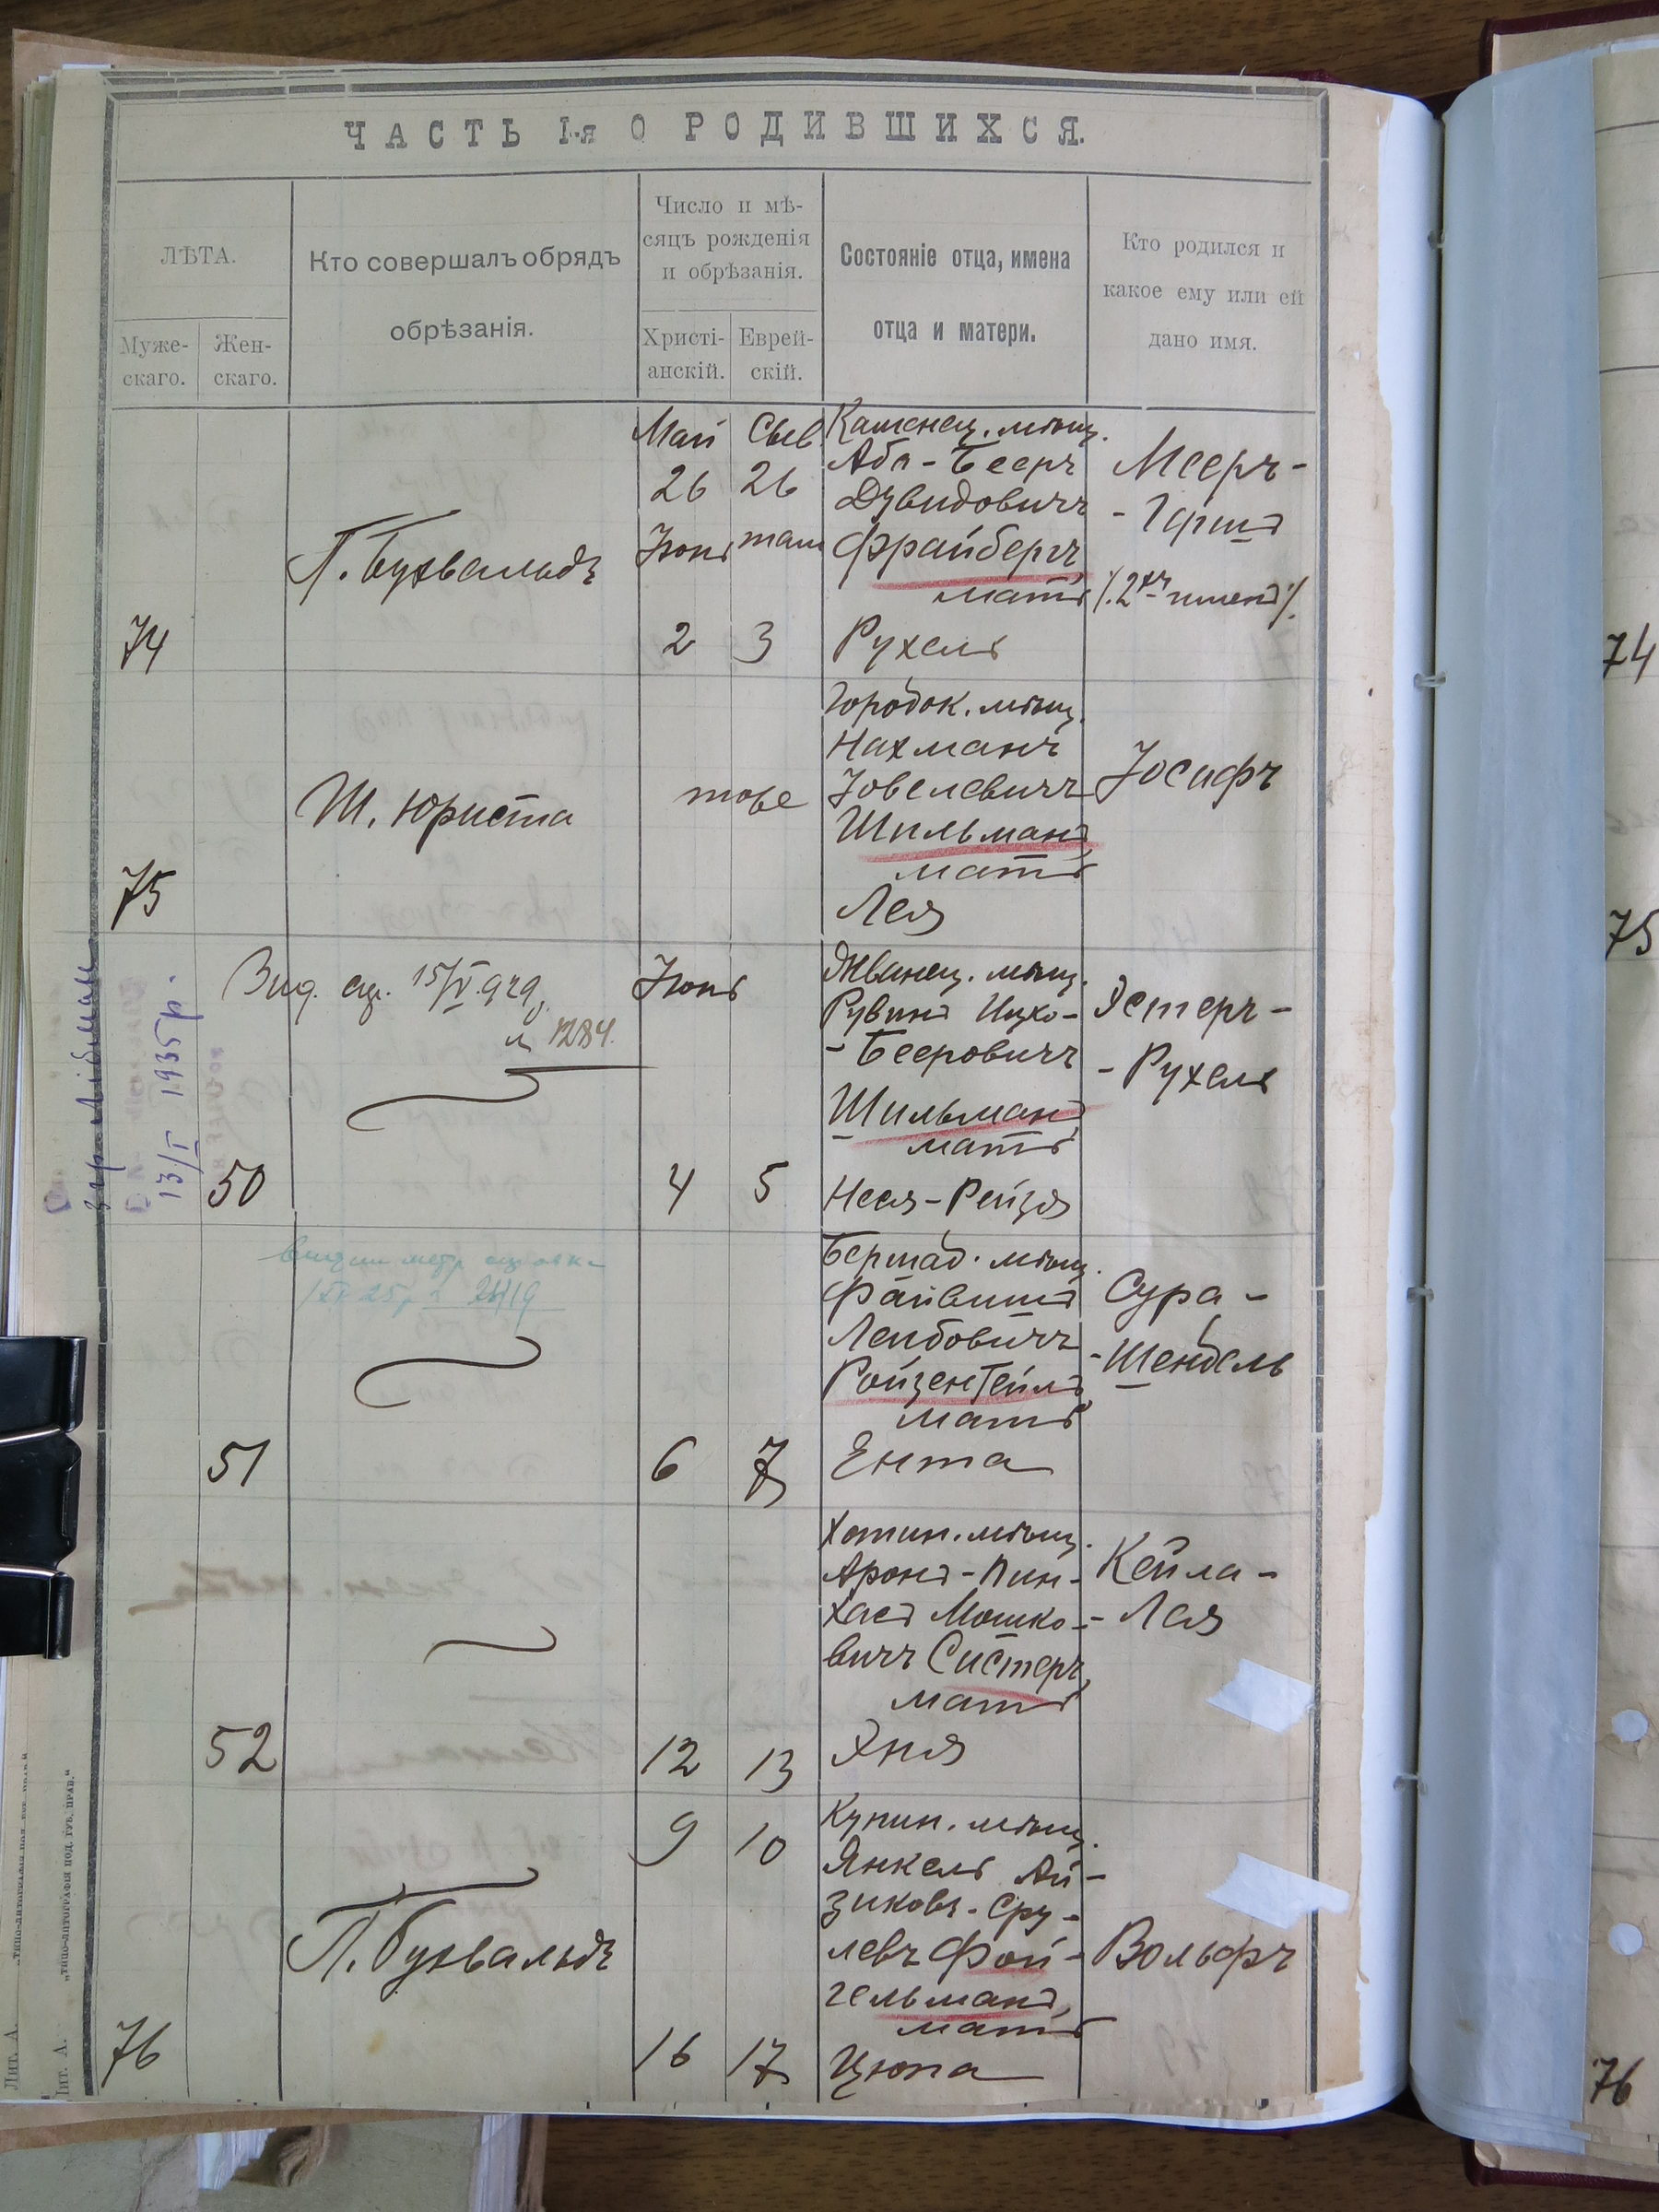 ЧАСТЬ I-я О РОДИВШИХСЯ.
ЛѢТА.
Муже-
скаго.
Жен-
скаго.
Кто совершалъ обрядъ
обрѣзанія.
Число и мѣ-
сяцъ рожденія
и обрѣзанія.
Христі-
анскій.
Еврей-
скій.
Состояніе отца, имена
отца и матери.
Кто родился и
какое ему или ей
дано имя.
74
П. Бухвальдъ
Май Сыв
26 26
Іюнь там
2 3
Каменец. мѣщ.
Аба-Бееръ
Дувидовичъ
Фрайбергъ
мать
Рухель
Мееръ-
-Гершъ
/.2хъ именъ/.
75
Ш. Юриста
тоже
Городок. мѣщ.
Нахманъ
Іовелевичъ
Шильманъ
мать
Лея
Іосифъ
13/I 1935 р.
50
15/IV.929
№ 1284.
Іюнь
4 5
Жванец. мѣщ.
Рувинъ Ицко-
-Бееровичъ
Шильманъ
мать
Неся-Рейзя
Эстеръ-
-Рухель
51
6 7
Бершад. мѣщ.
Файвишъ
Лейбовичъ
Ройзентейлъ
мать
Ента
Сура-
-Шендель
52
12 13
Хотин. мѣщ.
Аронъ-Пин-
хасъ Мошко-
вичъ Систеръ
мать
Хня
Кейла-
-Лея
76
П. Бухвальдъ
9 10
16 17
Купин. мѣщ.
Янкель Ай-
зиковъ-Сру-
левъ Фой-
гельманъ,
мать
Цюпа
Вольфъ
Лит. А.
Лит. А. „типо-литографія под. губ. прав.“
74
75
76